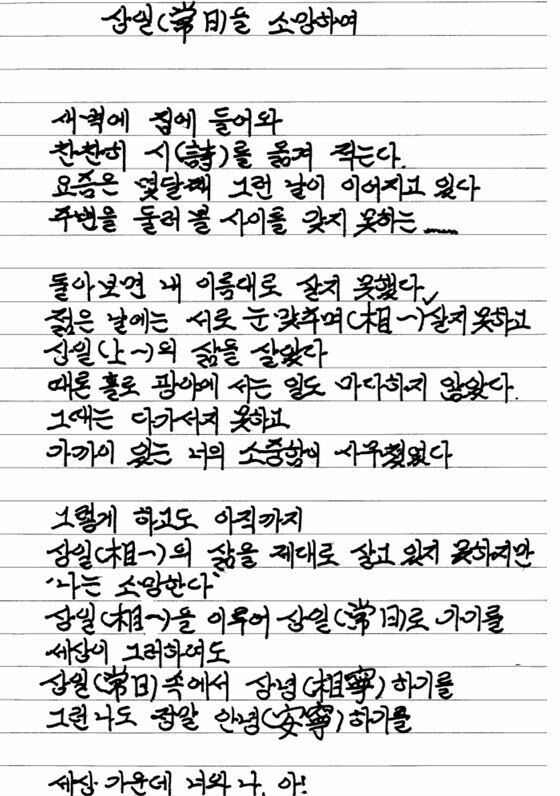 상일(常日)을 소망하며
새벽에 집에 들어와
찬찬히 시(詩)를 옮겨 적는다.
요즘은 몇달째 그런 날이 이어지고 있다
주변을 둘러 볼 사이를 갖지 못하는......
돌아보면 내 이름대로 살지 못했다.
젊은 날에는 서로 눈 맞추며(相一)살지 못하고
상일(上一)의 삶을 살았다
때론 홀로 광야에 서는 일도 마다하지 않았다.
그때는 다가서지 못하고
가까이 있는 너의 소중함이 사무쳤었다
그렇게 하고도 아직까지
상일(相一)의 삶을 제대로 살고 있지 못하지만
'나는 소망한다'
상일(相一)을 이루어 상일(常日)로 가기를
세상이 그러하여도
상일(常日) 속에서 상녕(相寧)하기를
그런 나도 정말 안녕(安寧)하기를
세상 가운데 너와 나, 아!